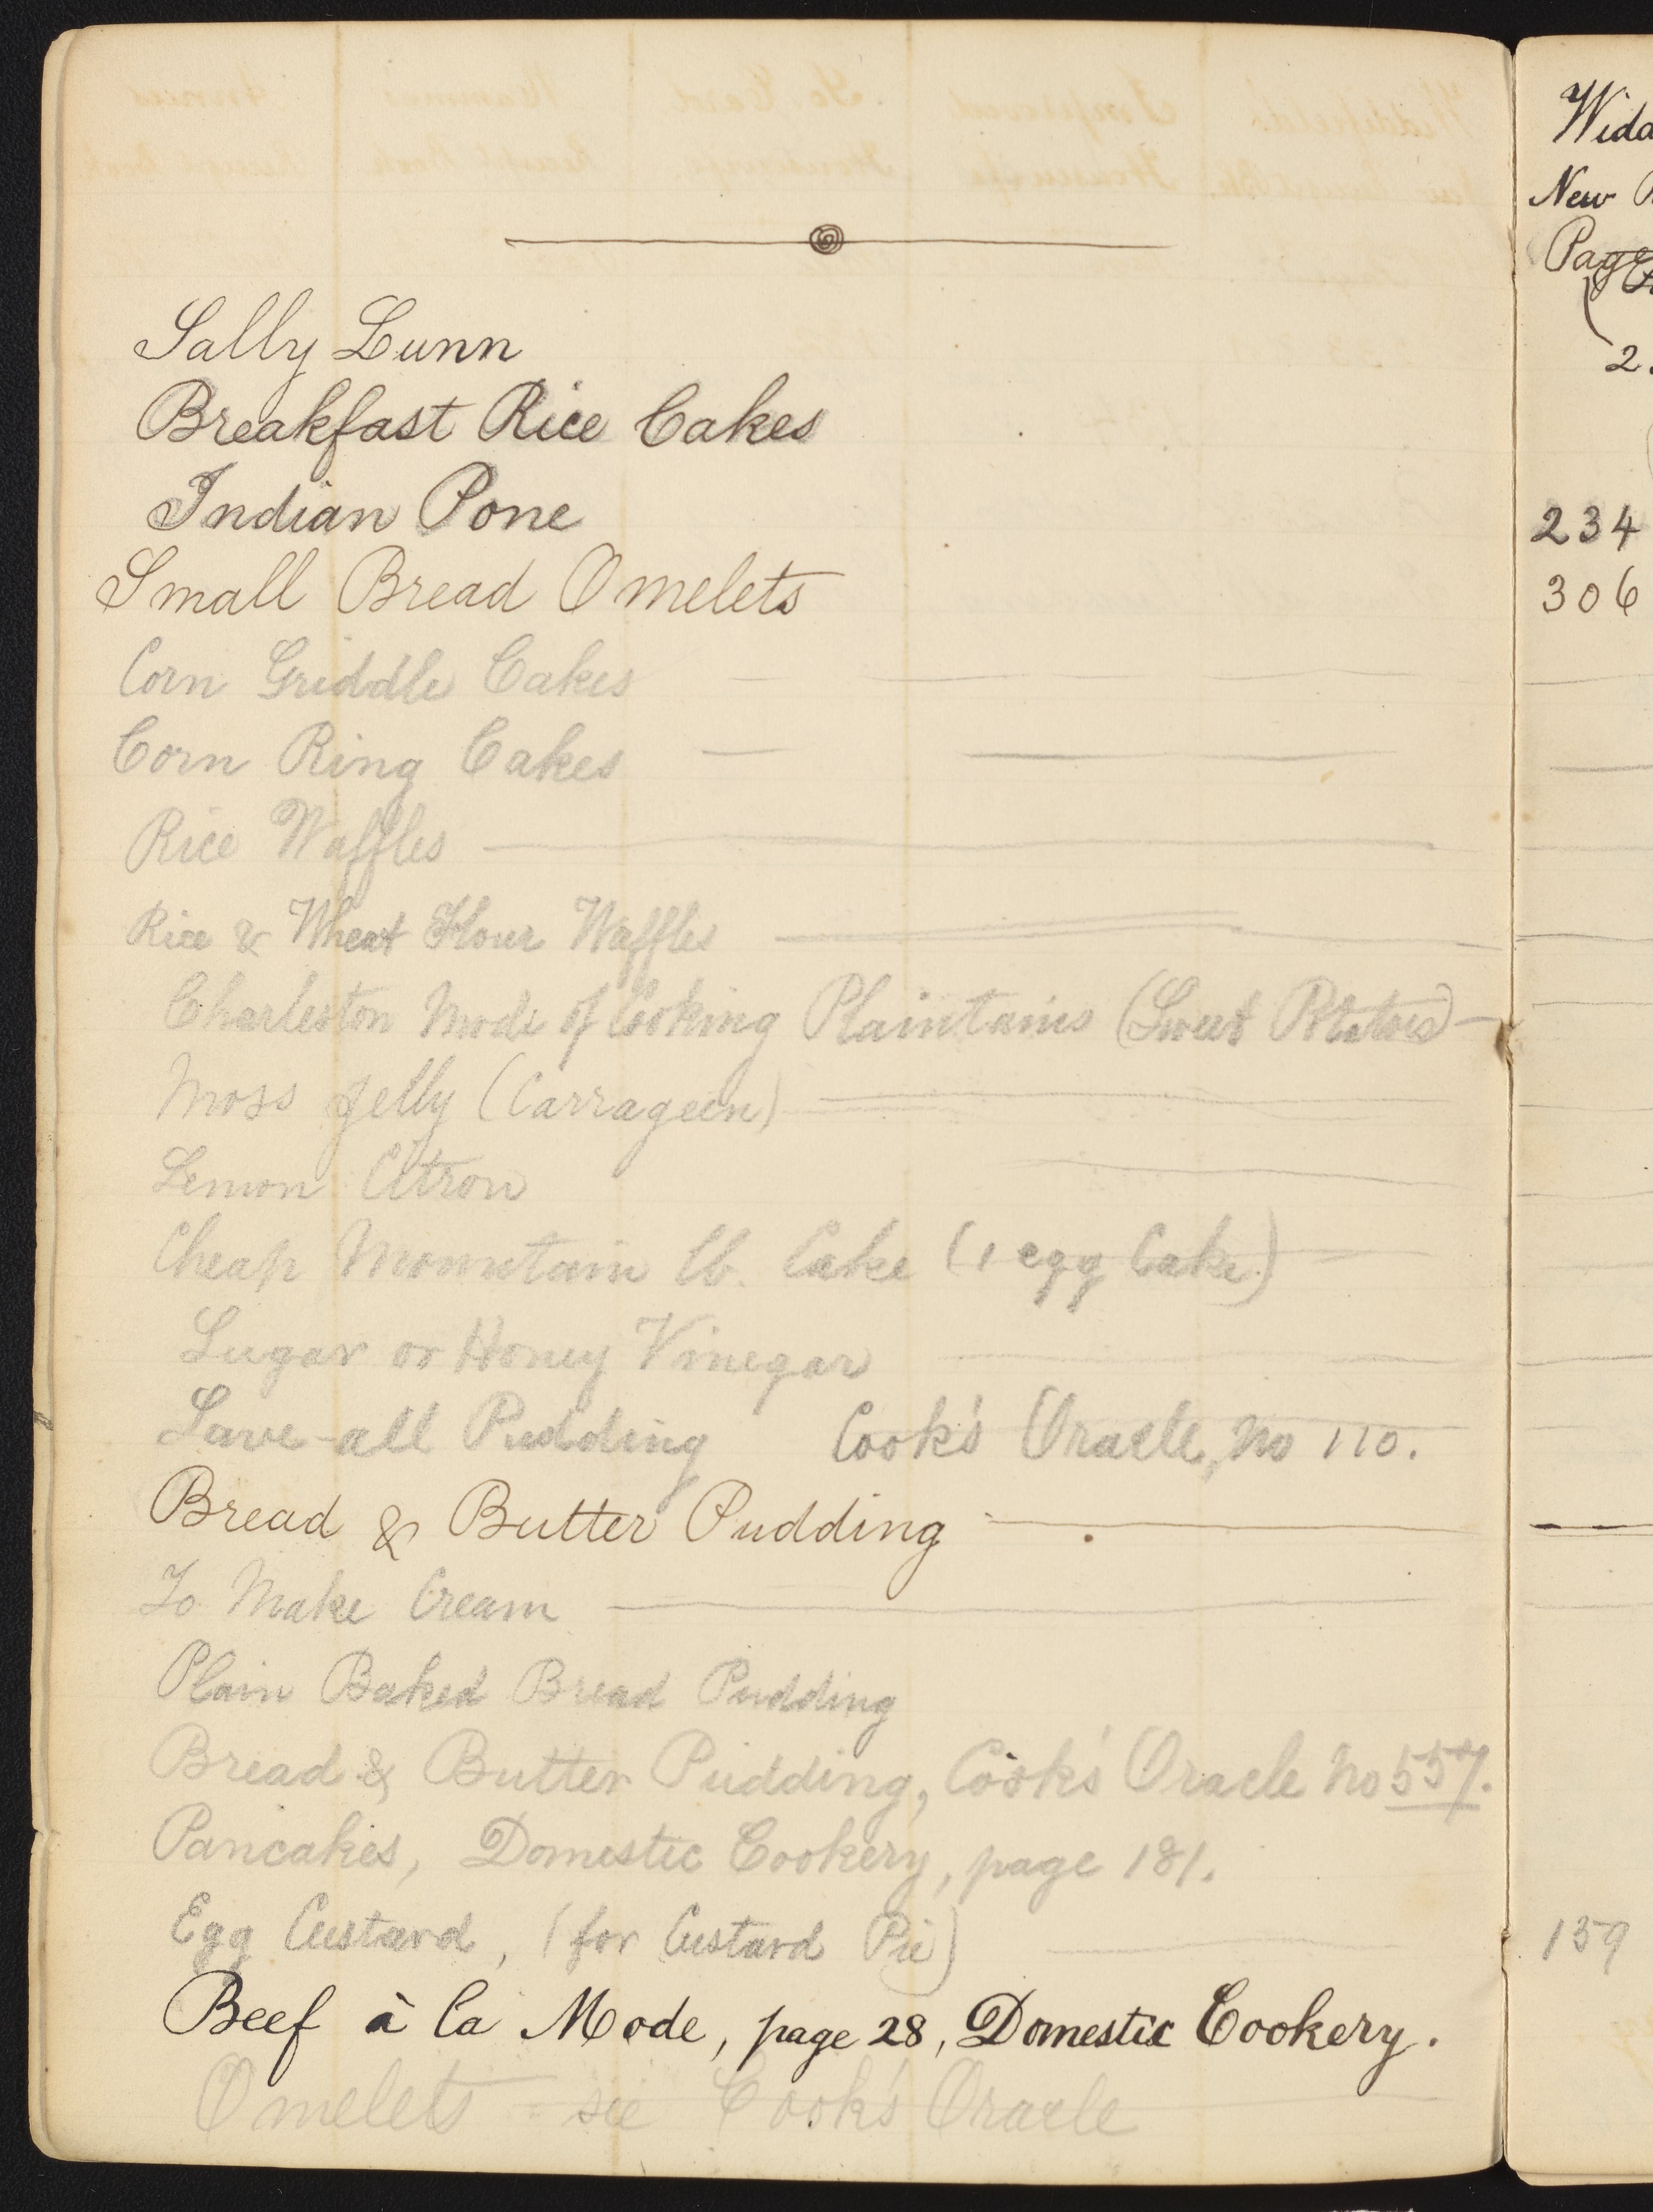 Sally Lunn
Breakfast Rice Cakes
Indian Pone
Small Bread Omelets
Corn Griddle Cakes
Corn Ring Cakes
Rice Waffles
Rice & Wheat Flour Waffles
Charleston Mode of Cooking Plaintains (Sweet Potatoes)
Moss Jelly (Carrageen)
Lemon Citron
Cheap Mountain lb. Cake (1 egg Cake)
Sugar or Honey Vinegar
Save-all Pudding Cook's Oracle, No 110.
Bread & Butter Pudding
To Make Cream
Plain Baked Bread Pudding
Bread & Butter Pudding, Cook's Oracle No 557.
Pancakes, Domestic Cookery, page 181.
Egg Custard, (for Custard Pie)
Beef à la Mode, page 28, Domestic Cookery.
Omelets - see Cook's Oracle
Widd
New
Page
2
234
306
159